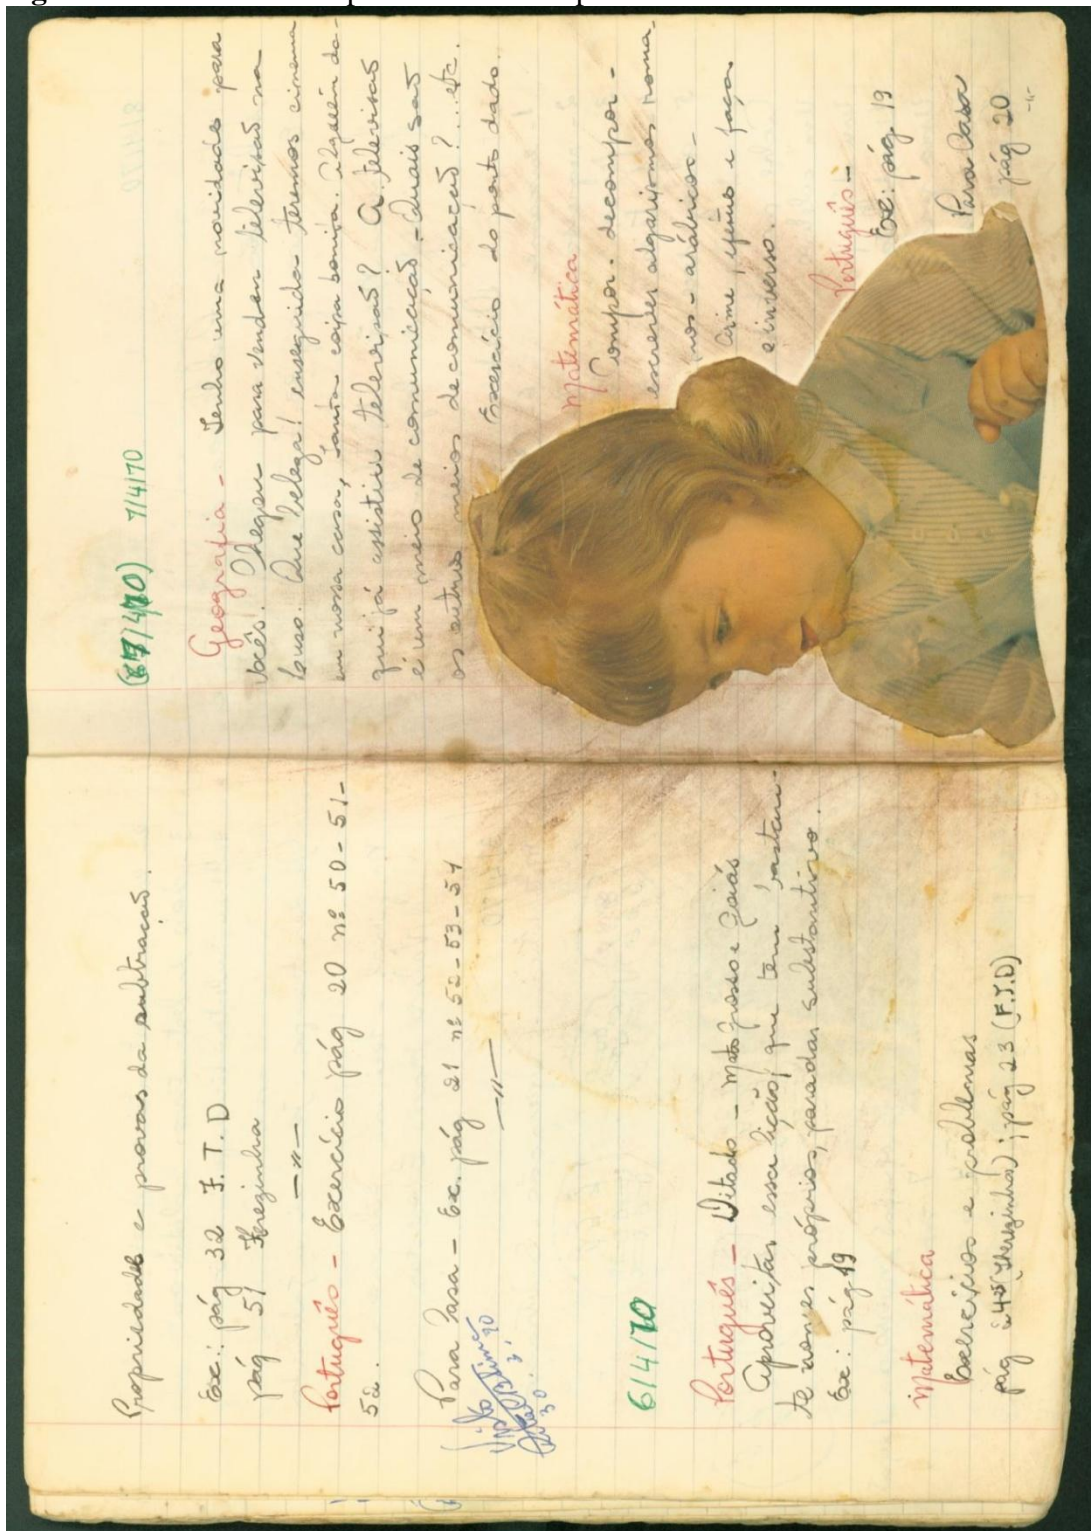 Propriedades e provas da subtração.
Ex: pág 32 F. T. D
pág 51 Therezinha
—"—
Português - Exercício pág 20 nº 50-51-
52.
Para Casa - Ex. pág 21 nº 52-53-54
—"—
Visto
6/4/70
Português - Ditado - Mato Grosso e Goiás
Aproveitar essa lição, que tem bastan-
te nomes próprios, para dar substantivo.
Ex: pág 19
Matemática
Exercícios e problemas
pág 45 (Therezinha); pág 23 (F.T.D)
7/4/70
Geografia - Tenho uma novidade para
vocês! Chegou para vender televisão na
Que beleza! enseguida teremos cinema
em nossa casa, tanta coisa bonita. Alguém da-
qui já assistiu televisão? A televisão
é um meio de comunicação - Quais são
os outros meios de comunicação?... etc.
Exercício do ponto dado.
Matemática
Compor - decompor -
escrever algarismos roma-
nos - arábicos -
Arme, efetue e faça
o inverso.
Português -
Ex: pág 19
Para Casa
pág 20
-"-